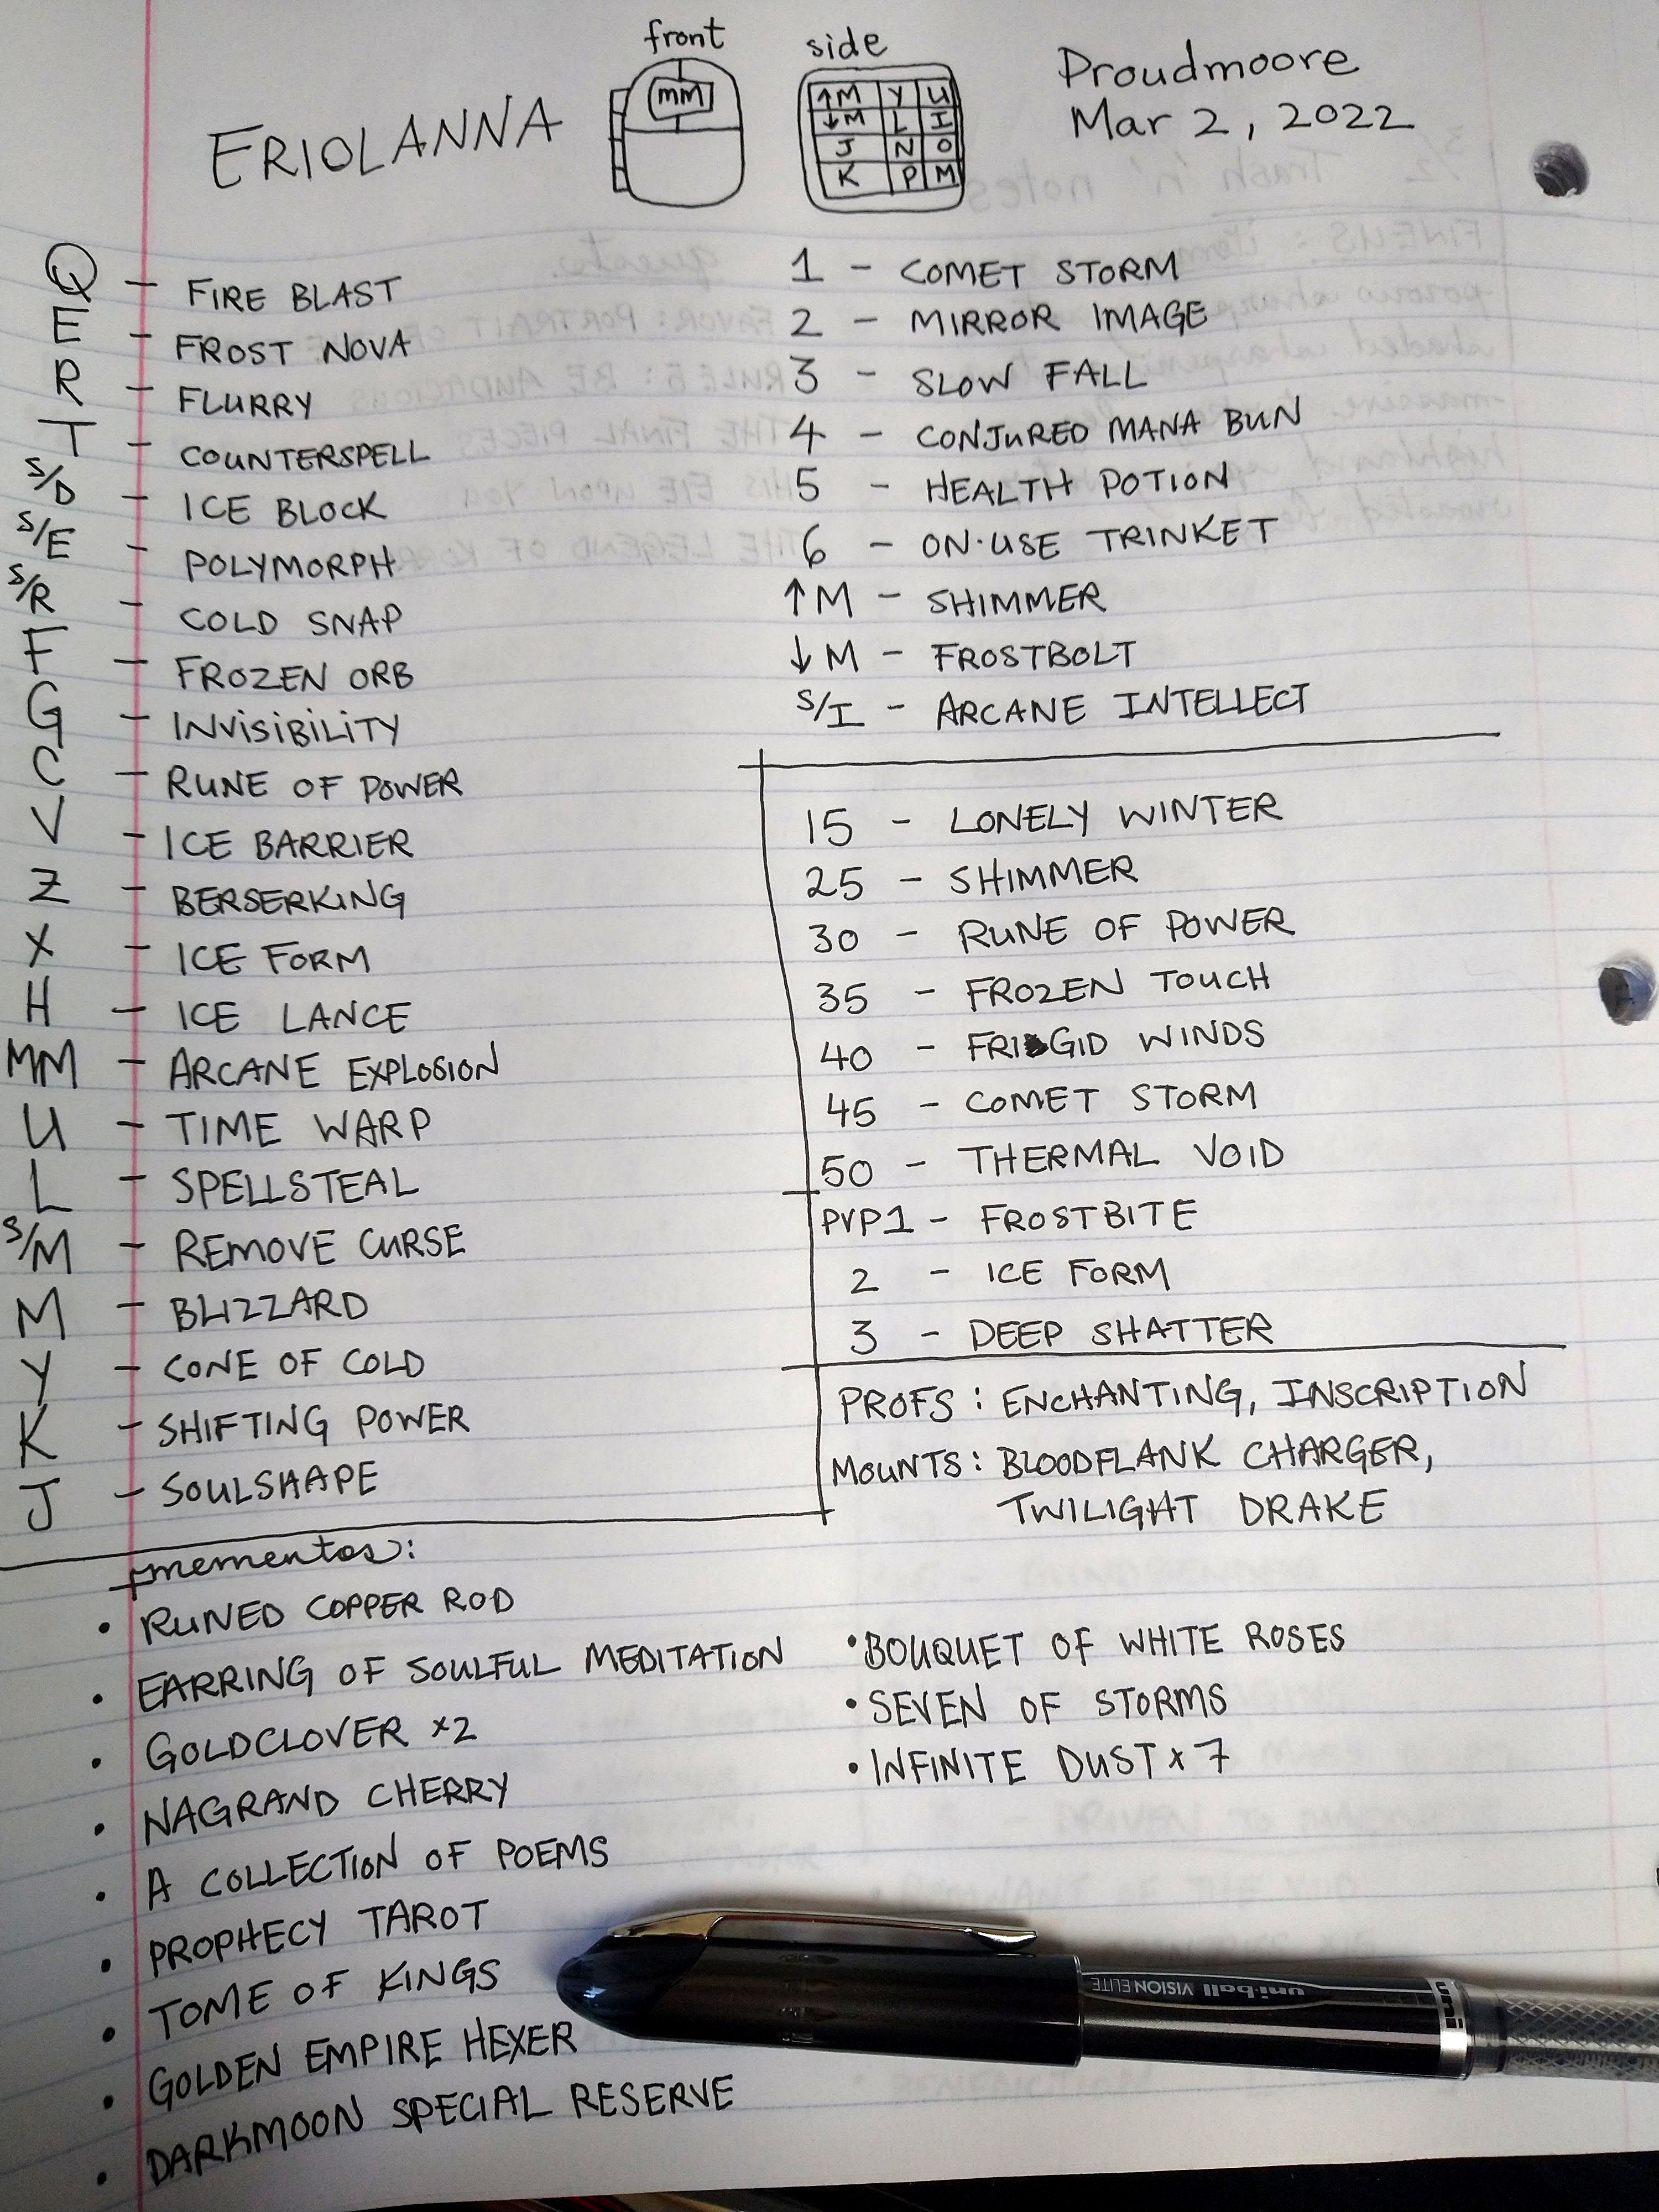 ERIOLANNA
front
MM
side
↑M Y U
↓M L I
J N O
K P M
Proudmoore
Mar 2, 2022
Q - FIRE BLAST
E - FROST NOVA
R - FLURRY
T - COUNTERSPELL
S/D - ICE BLOCK
S/E - POLYMORPH
S/R - COLD SNAP
F - FROZEN ORB
G - INVISIBILITY
C - RUNE OF POWER
V - ICE BARRIER
Z - BERSERKING
X - ICE FORM
H - ICE LANCE
MM - ARCANE EXPLOSION
U - TIME WARP
L - SPELLSTEAL
S/M - REMOVE CURSE
M - BLIZZARD
Y - CONE OF COLD
K - SHIFTING POWER
J - SOULSHAPE
1 - COMET STORM
2 - MIRROR IMAGE
3 - SLOW FALL
4 - CONJURED MANA BUN
5 - HEALTH POTION
6 - ON·USE TRINKET
↑M - SHIMMER
↓M - FROSTBOLT
S/I - ARCANE INTELLECT
15 - LONELY WINTER
25 - SHIMMER
30 - RUNE OF POWER
35 - FROZEN TOUCH
40 - FRIGID WINDS
45 - COMET STORM
50 - THERMAL VOID
PVP1 - FROSTBITE
2 - ICE FORM
3 - DEEP SHATTER
PROFS: ENCHANTING, INSCRIPTION
MOUNTS: BLOODFLANK CHARGER,
TWILIGHT DRAKE
mementos:
• RUNED COPPER ROD
• EARRING OF SOULFUL MEDITATION
• GOLDCLOVER x2
• NAGRAND CHERRY
• A COLLECTION OF POEMS
• PROPHECY TAROT
• TOME OF KINGS
• GOLDEN EMPIRE HEXER
• DARKMOON SPECIAL RESERVE
• BOUQUET OF WHITE ROSES
• SEVEN OF STORMS
• INFINITE DUST x 7
uni-ball VISION ELITE
uni